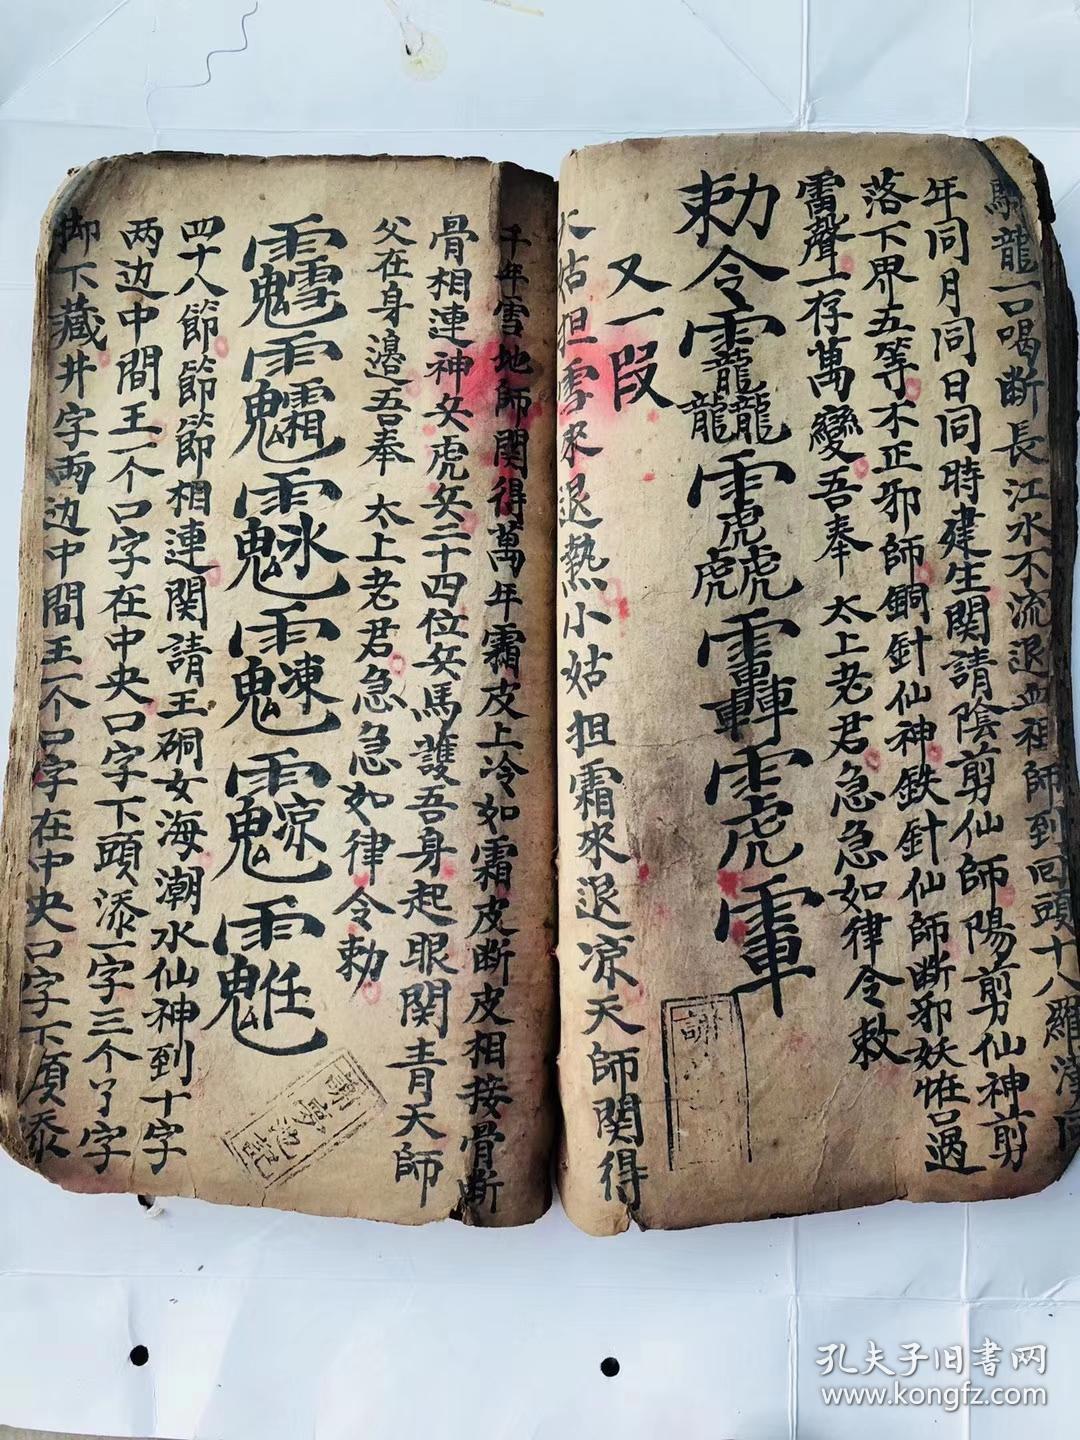 龍一口喝断長江水不流退血祖師到回頭十八羅漢同
年同月同日同時建生関請陰剪仙師陽剪仙神剪
落下界五等不正邪師銅針仙神鉄針仙師断邪妖怪吕遇
雷聲一存萬變吾奉 太上老君急急如律令敕
勅令
又一段
大姑担雪來退熱小姑担霜來退凉天師関得
千年雪地師関得萬年霜皮上冷如霜皮断皮相接骨断
骨相連神安虎安二十四位安馬護吾身起眼関青天師
父在身邉吾奉 太上老君急急如律令勅
四十八節節節相連関請王硐女海潮水仙神到十字
两边中間王一个口字在中央口字下頭添一字三个了字
脚下藏井字两边中間王一个口字在中央口字下頭添
謝
孔夫子旧書网
www.kongfz.com